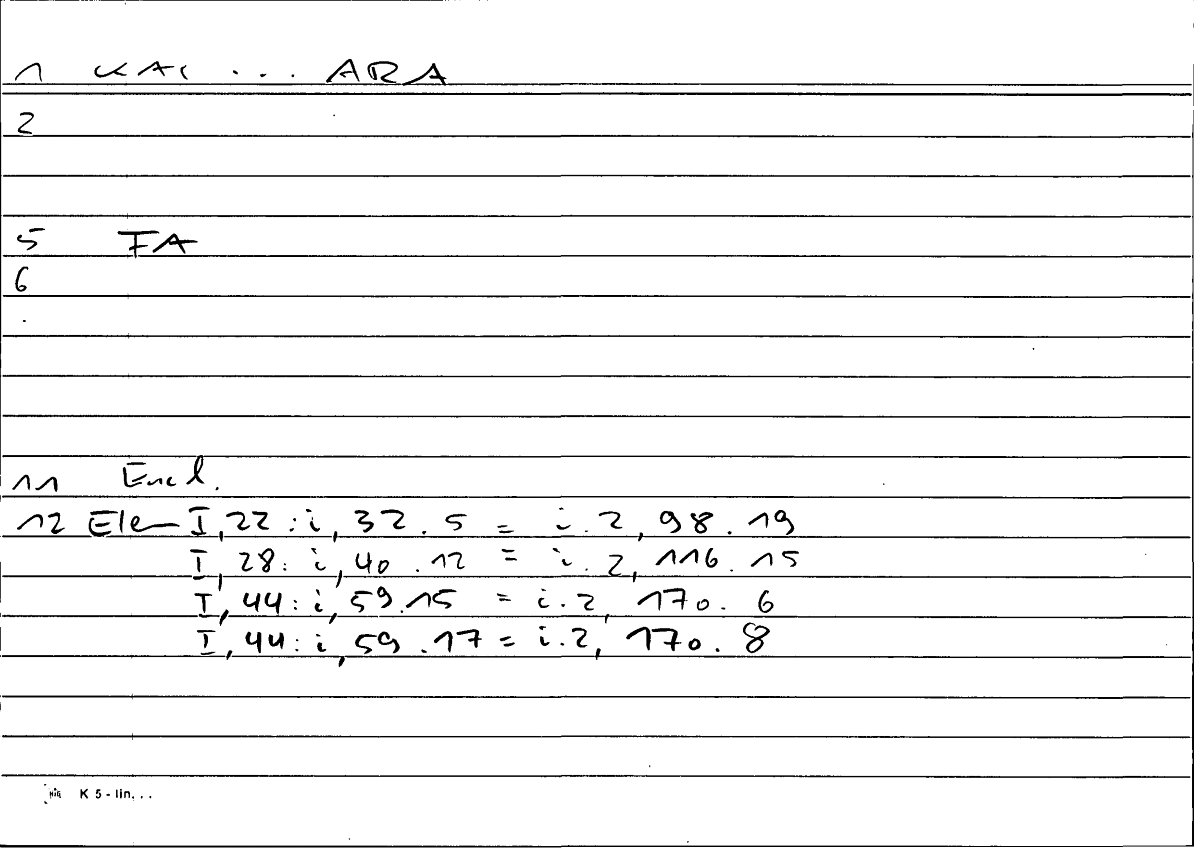 1 KAI ... ARA
2
5 FA
6
.
11 Eucl.
12 Elem I,22 : i, 32.5 = i.2, 98.19
I, 28: i, 40.12 = i.2, 116.15
I, 44: i, 59.15 = i.2, 170.6
I, 44: i, 59.17 = i.2, 170.8
K 5 - lin. . .